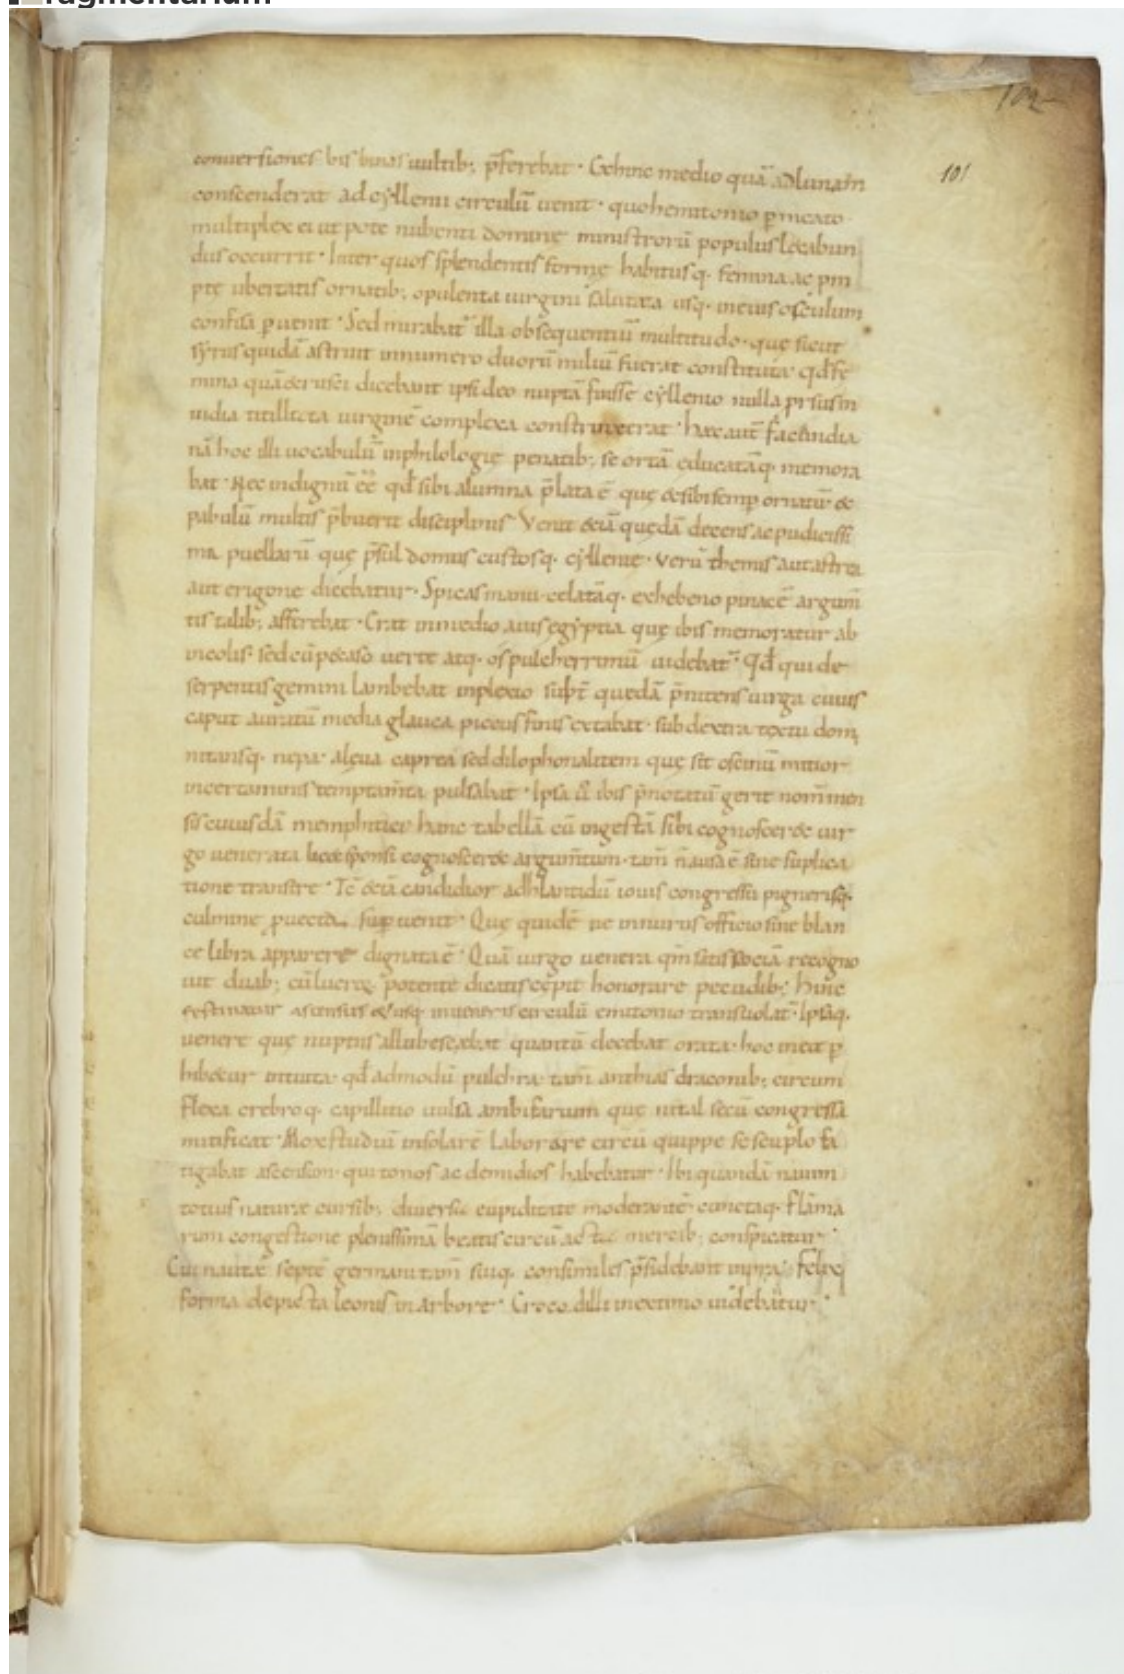 fragmentarium
102
101
conuersiones bis binas uultib; p̄ferebat · Gehinc medio quā ad lunam
conscenderat ad cyllenii circulū uenit · quo hemitonio p̱meato
multiplex ei ut pote nubenti domine ministrorū populus lętabun
dus occurrit · Inter quos splendentis formę habitusq. femina ac prom
ptę ubertatis ornatib; opulenta uirgini salutata usq. in eius osculum
confisa ꝑuenit · Sed mirabat̄ illa obsequentiū multitudo · quę sicut
syrus quidā astruit in numero duorū miliū fuerat constituta · qđ fe
mina quā & rusci dicebant ipsi deo nuptā fuisse cyllenio nulla prsus in
uidia titillata uirginē complexa constrinxerat · hæc aut̄ facundia
nā hoc illi uocabulū in philologię penatib; se ortā educatāq. memora
bat · Nec indignū ēē qđ sibi alumna p̄lata ē quę & sibi semp ornatū &
pabulū multis p̄buerit disciplinis Venit &iā quędā decens ac pudicissi
ma puellarū quę p̄sul domus custosq. cyllenię · verū themis aut astrea
aut erigone dicebatur · Spicas manu · celatāq. ex hebeno pinacē argum̄
tis talib; afferebat · Erat in medio auis egyptia quę ibis memoratur ab
incolis · sed cū p&aso uertę atq. os pulcherrimū uidebat̄ · qđ qui de
serpentis gemini lambebat inplexio subt̄ quędā p̄nitens uirga cuius
caput auratū media glauca piceus finis extabat · sub dextra
nitansq. nepa · alęua caprea sed
in certaminis temptam̄ta pulsabat · Ipsa ibis p̄notatū gerit nom̄ men
sis cuiusdā memphitici hanc tabellā cū ingestā sibi cognoscer& uir
go uenerata lic& sponsi cognoscer& argum̄tum · tam̄ n̄ ausa ē sine suplica
tione transire · Tc̄ &iā candidior iouis congressu
culmine ꝑuecta superuenit · Quę quidē ne in nurus officio sine blan
ce libra apparere dignata ē · Quā uirgo uenera qm̄ satis sociā recogno
uit duab; potente dicatis cępit honorare pecudib; hinc
in ueneris circulū emitonio transuolat̄ · Ipsāq.
venere quę nuptiis allubescebat quantū decebat orata · hoc
hib&ur intuita · qđ admodū pulchra · tam̄ anthias draconib; circum
flexa crebroq. capillitio uulsa quę secū congressa
mitificat · Mox studiū in solarē laborare circū quippe se scuplo fa
tigabat ascension · qui tonos ac demidios habebatur · Ibi quandā nauim
totius naturæ cursib; diuersa cupiditate moderantē cunctaq. flāma
rum congestione plenissimā beatis circū actā mercib; conspicatur ·
Cui nautæ septē germani tam̄ suiq. consimiles p̄sidebant in
forma depicta leonis in arbore · Crocodilli in extimo uidebatur ·